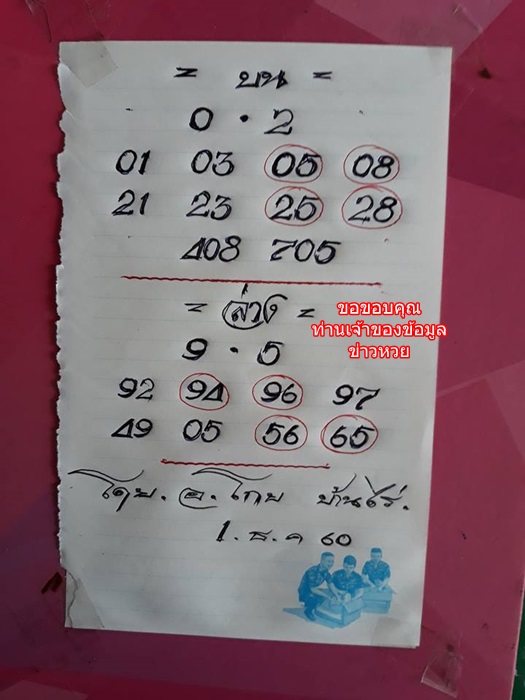 = บน =
0 · 2
01 03 05 08
21 23 25 28
408 705
= ล่าง =
9 · 5
92 94 96 97
49 05 56 65
โดย. อ. โกย บ้านไร่.
1. ธ. ค 60
ขอขอบคุณ
ท่านเจ้าของข้อมูล
ข่าวหวย